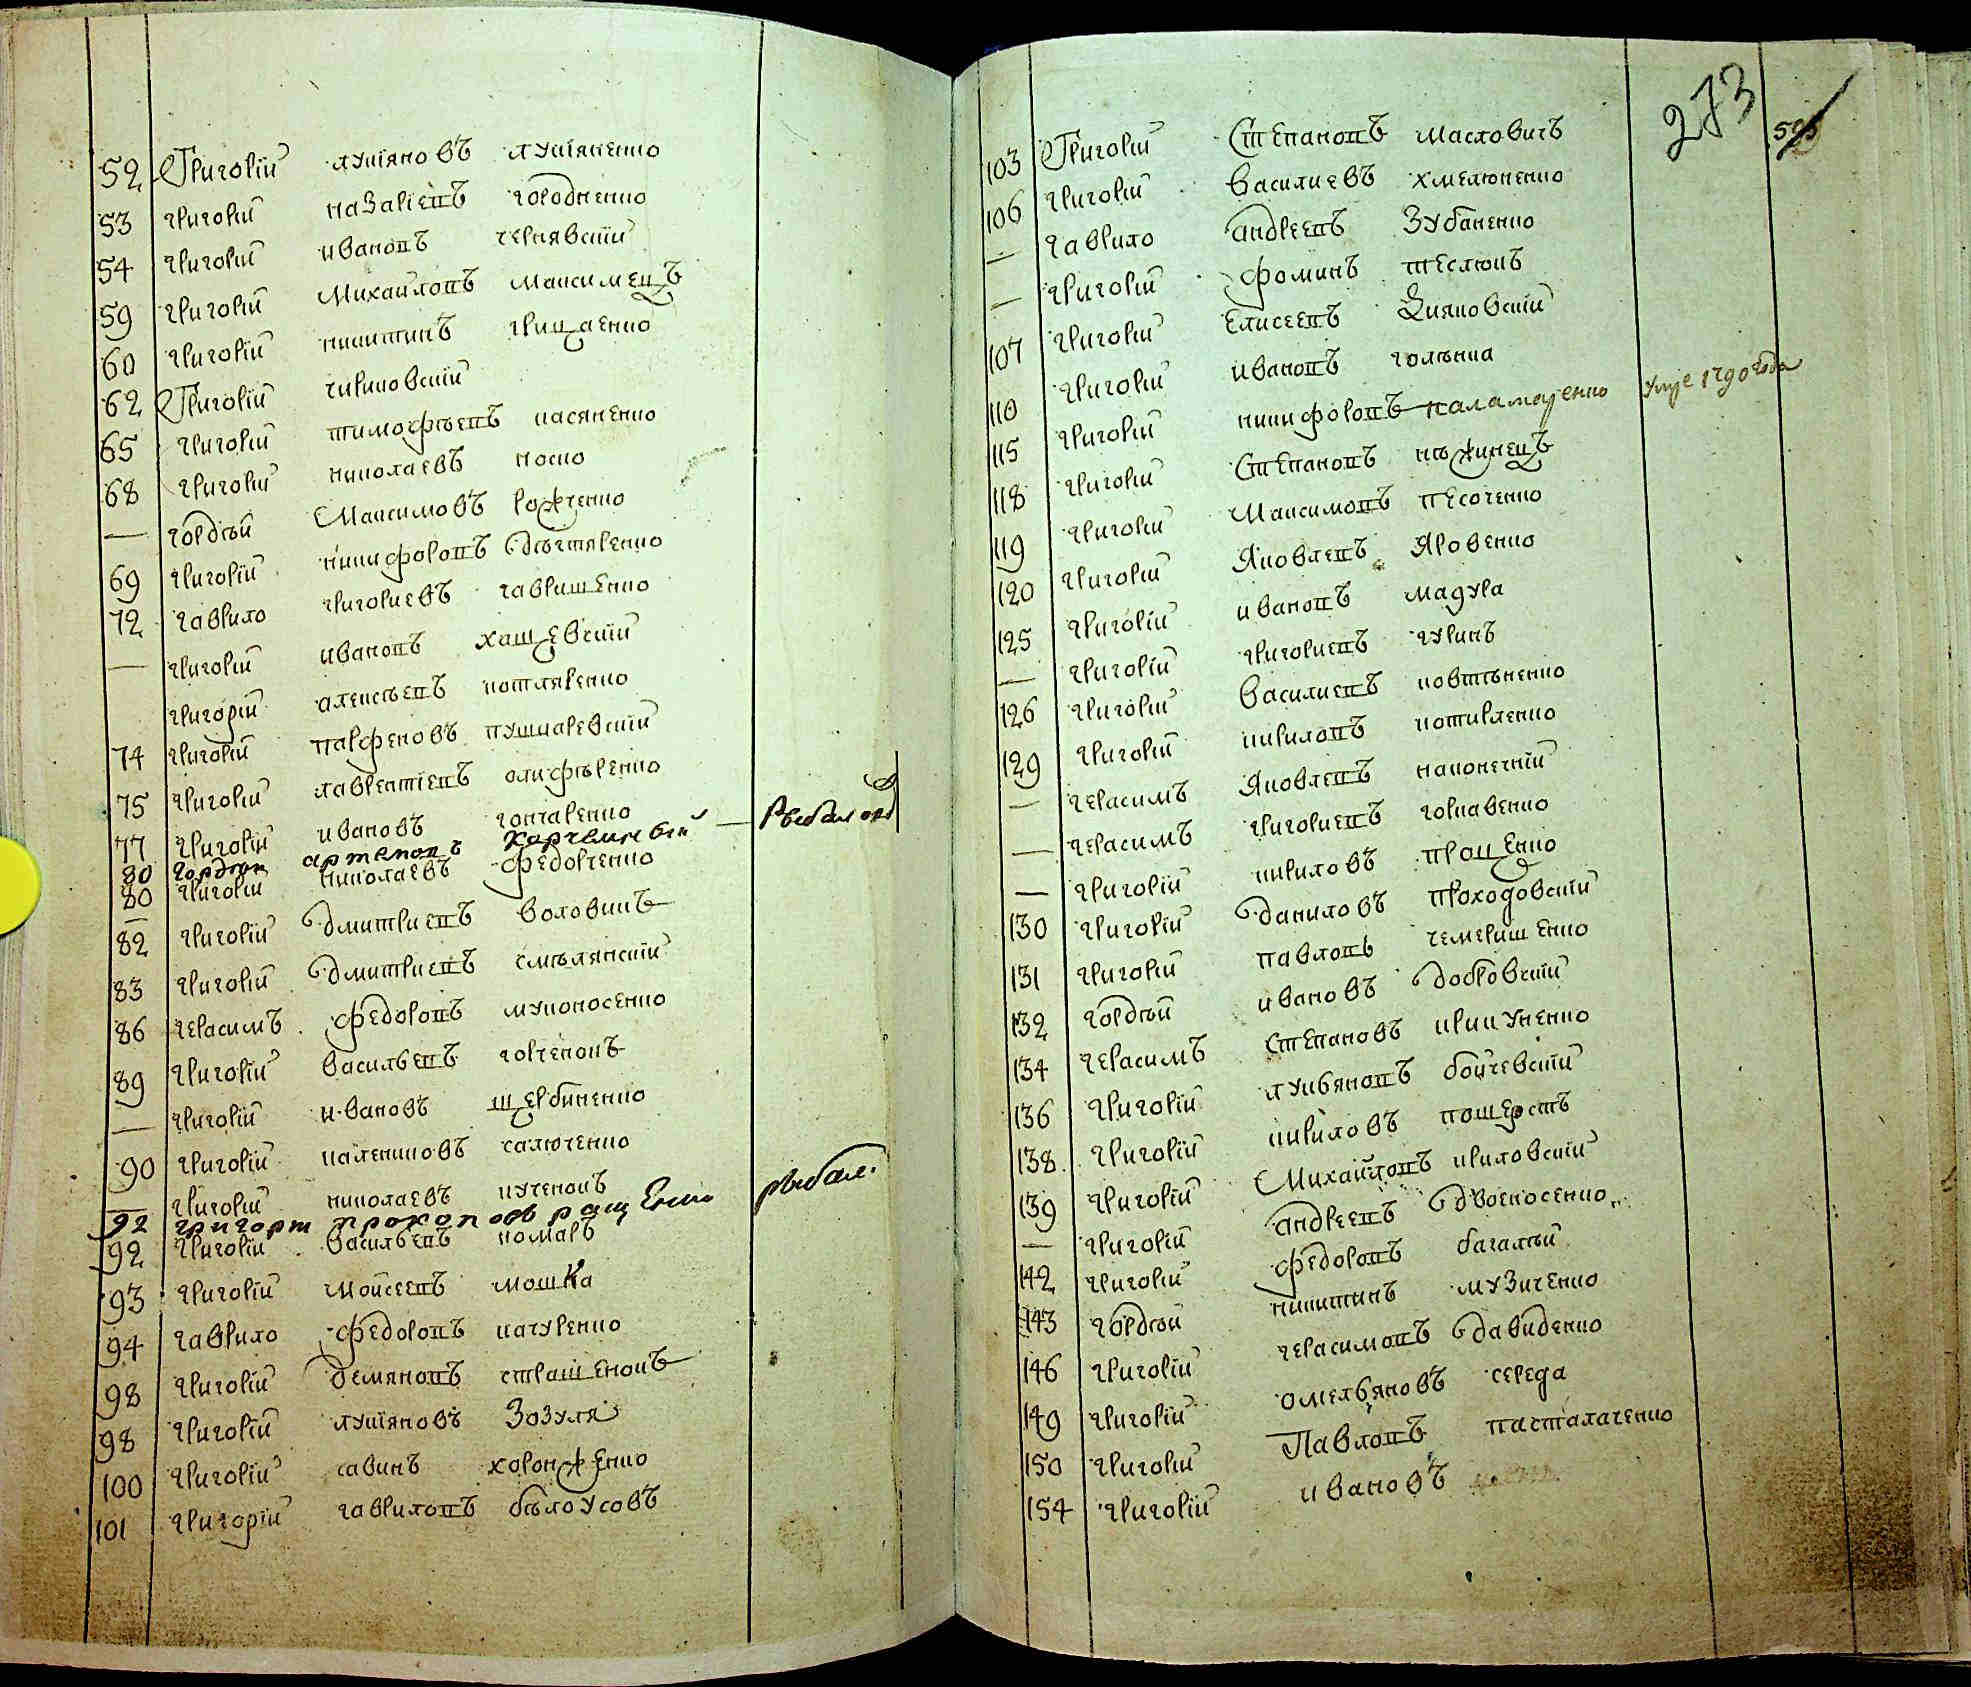 52 Григорій лукіяновъ лукіяненко
53 григорій назаріепъ городненко
54 григорій иванопъ чернявскій
59 григорій Михайлопъ максимецъ
60 григорій никитинъ грицаенко
62 Григорій чириковскій
65 григорій тимофѣепъ касяненко
68 григорій николаевъ носко
— гордѣй Максимовъ рожченко
69 григорій никифоропъ дѣгтяренко
72 гаврило григориевъ гаврищенко
— григорій иванопъ хащевскій
григорій алексѣепъ котляренко
74 григорій парфеновъ пушкаревскій
75 григорій лаврентіепъ олифѣренко
77 григорій ивановъ гончаренко
80 гордѣй артемопъ
80 григорій николаевъ федорченко
82 григорій дмитриепъ воловикъ
83 григорій дмитриепъ смѣлянскій
86 герасимъ федоропъ муконосенко
89 григорій васильепъ горченокъ
— григорій ивановъ щербиненко
90 григорій калениковъ салюченко
— григорій николаевъ кученокъ
92 григори прокоповъ ращенко рыбал.
92 григорій васильепъ комаръ
93 григорій мойсеепъ мошка
94 гаврило федоропъ качуренко
98 григорій демянопъ стращенокъ
98 григорій лукіяновъ зозуля
100 григорій савинъ хоронженко
101 григорій гаврилопъ бѣлоусовъ
273
103 Григорій Степанопъ масловичъ
106 григорій василиевъ хмелюненко
— гаврило андреепъ зубаненко
— григорій фоминъ теслюкъ
107 григорій елисеепъ кияновскій
110 григорій иванопъ голѣнка
115 григорій никифоропъ паламаренко умре 1790 года
118 григорій Степанопъ нѣжинецъ
119 григорій Максимопъ песоченко
120 григорій Яковлепъ Яровенко
125 григорій иванопъ мадура
— григорій григориепъ гуринъ
126 григорій василиепъ ковтѣненко
129 григорій кирилопъ котирленко
— герасимъ Яковлепъ наконечній
— герасимъ григориепъ горкавенко
— григорій кириловъ проценко
130 григорій даниловъ проходовскій
131 григорій павлопъ чемерищенко
132 гордѣй ивановъ добровскій
134 герасимъ степановъ крикуненко
136 григорій лукьянопъ бойчевскій
138 григорій кириловъ
139 григорій Михайлопъ криловскій
— григорій андреепъ двоеносенко
142 григорій федоропъ багалѣй
143 гордѣй никитинъ музиченко
146 григорій герасимопъ давиденко
149 григорій омельяновъ середа
150 григорій Павлопъ пасталаченко
154 григорій ивановъ